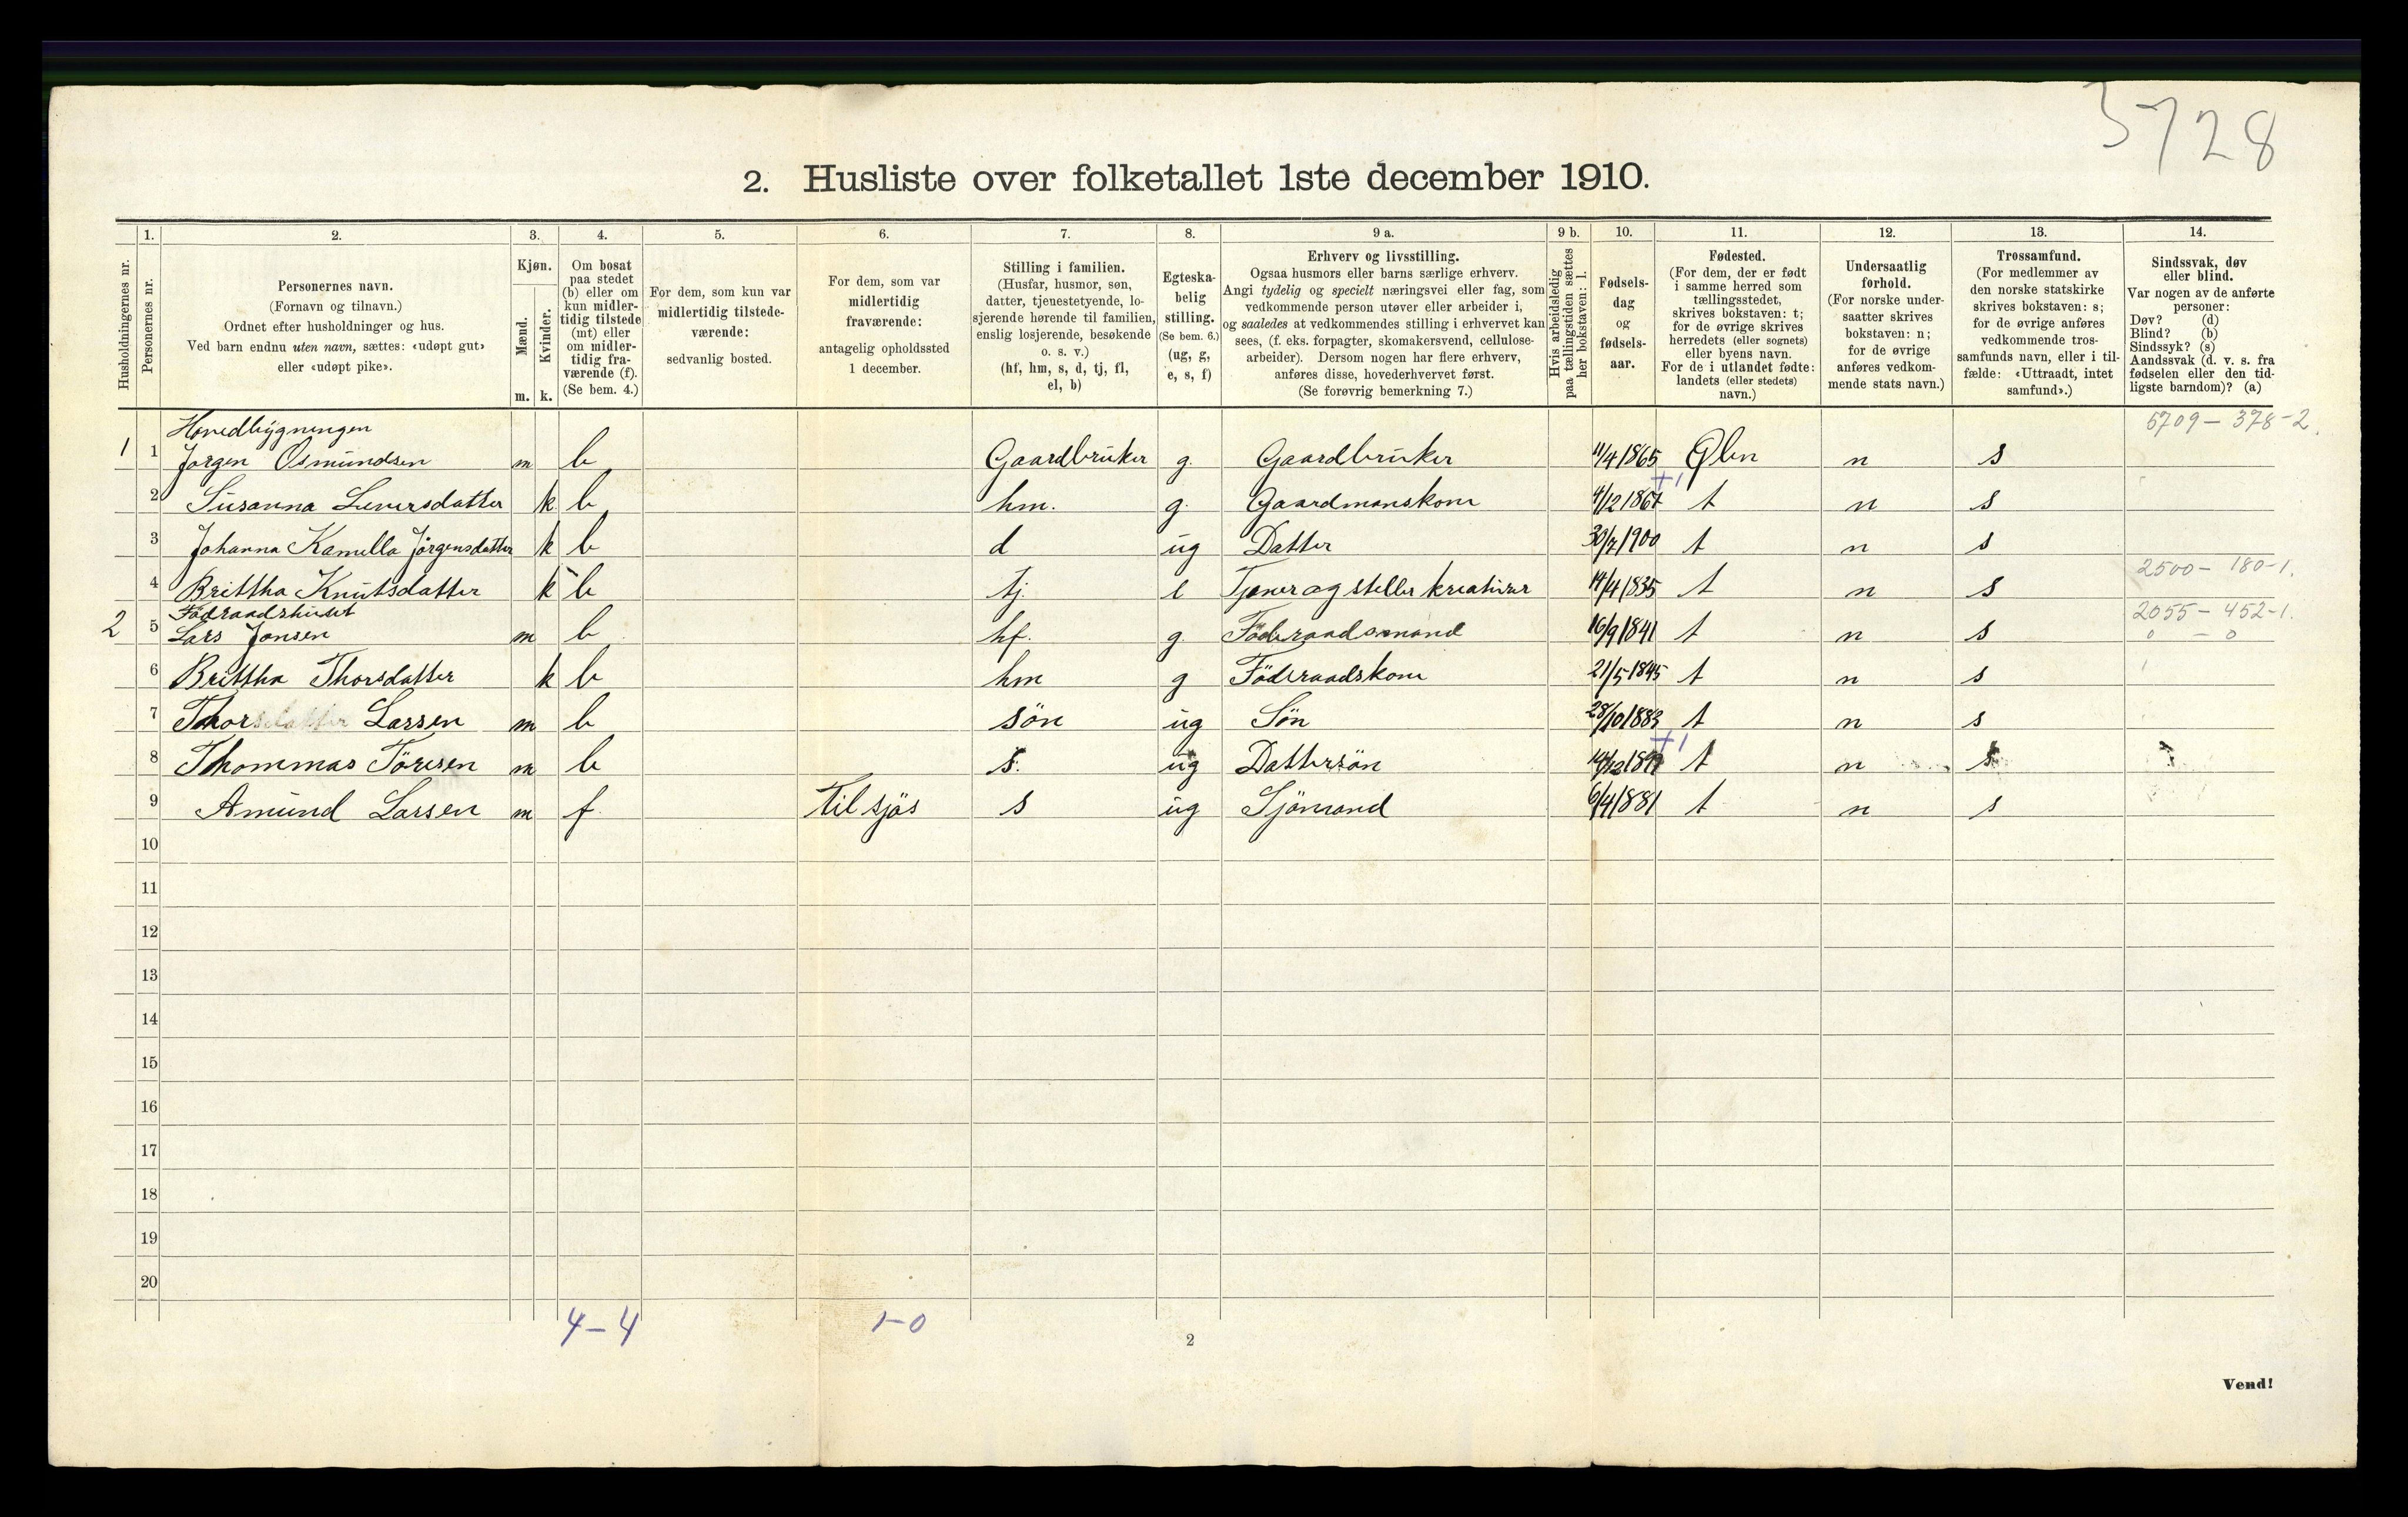 5728
2. Husliste over folketallet 1ste december 1910.
1. 2. 3. 4. 5. 6. 7. 8. 9 a. 9 b. 10. 11. 12. 13. 14.
Husholdningernes nr.
Personernes nr.
Personernes navn.
(Fornavn og tilnavn.)
Ordnet efter husholdninger og hus.
Ved barn endnu uten navn, sættes: «udøpt gut»
eller «udøpt pike».
Kjøn.
Mænd.
Kvinder.
m. k.
Om bosat
paa stedet
(b) eller om
kun midler-
tidig tilstede
(mt) eller
om midler-
tidig fra-
værende (f).
(Se bem. 4.)
For dem, som kun var
midlertidig tilstede-
værende:
sedvanlig bosted.
For dem, som var
midlertidig
fraværende:
antagelig opholdssted
1 december.
Stilling i familien.
(Husfar, husmor, søn,
datter, tjenestetyende, lo-
sjerende hørende til familien,
enslig losjerende, besøkende
o. s. v.)
(hf, hm, s, d, tj, fl,
el, b)
Egteska-
belig
stilling.
(Se bem. 6.)
(ug, g,
e, s, f)
Erhverv og livsstilling.
Ogsaa husmors eller barns særlige erhverv.
Angi tydelig og specielt næringsvei eller fag, som
vedkommende person utøver eller arbeider i,
og saaledes at vedkommendes stilling i erhvervet kan
sees, (f. eks. forpagter, skomakersvend, cellulose-
arbeider). Dersom nogen har flere erhverv,
anføres disse, hovederhvervet først.
(Se forøvrig bemerkning 7.)
Hvis arbeidsledig
paa tællingstiden sættes
her bokstaven: l.
Fødsels-
dag
og
fødsels-
aar.
Fødested.
(For dem, der er født
i samme herred som
tællingsstedet,
skrives bokstaven: t;
for de øvrige skrives
herredets (eller sognets)
eller byens navn.
For de i utlandet fødte:
landets (eller stedets)
navn.)
Undersaatlig
forhold.
(For norske under-
saatter skrives
bokstaven: n;
for de øvrige
anføres vedkom-
mende stats navn.)
Trossamfund.
(For medlemmer av
den norske statskirke
skrives bokstaven: s;
for de øvrige anføres
vedkommende tros-
samfunds navn, eller i til-
fælde: «Uttraadt, intet
samfund».)
Sindssvak, døv
eller blind.
Var nogen av de anførte
personer:
Døv? (d)
Blind? (b)
Sindssyk? (s)
Aandssvak (d. v. s. fra
fødselen eller den tid-
ligste barndom)? (a)
Hovedbygningen 5709 - 378-2
1 1 Jorgen Osmundsen m b Gaardbruker g. Gaardbruker 11/4 1865 Ølen n s
2 Susanna Sieversdatter k b hm. g. Gaardmanskone 4/12 1867 +1 t n s
3 Johanna Kamilla Jörgensdatter k b d ug Datter 30/7 1900 t n s
4 Brittha Knutsdatter k b tj. e Tjener og steller kreaturer 14/4 1835 t n s 2500 - 180-1.
Föderaadshuset 2055 - 452-1.
2 5 Lars Jonsen m b hf. g. Föderaadsmand 16/9 1841 t n s 0 - 0
6 Brittha Thorsdatter k b hm g Föderaadskone 21/5 1845 t n s
7 Thor Larsen m b sön ug Sön 28/10 1883 t n s
8 Thommas Töresen m b s. ug Dattersön 14/12 1899 +1 t n s
9 Amund Larsen m f Til sjös s ug Sjömand 6/4 1881 t n s
10
11
12
13
14
15
16
17
18
19
20
4-4 1-0
2
Vend!